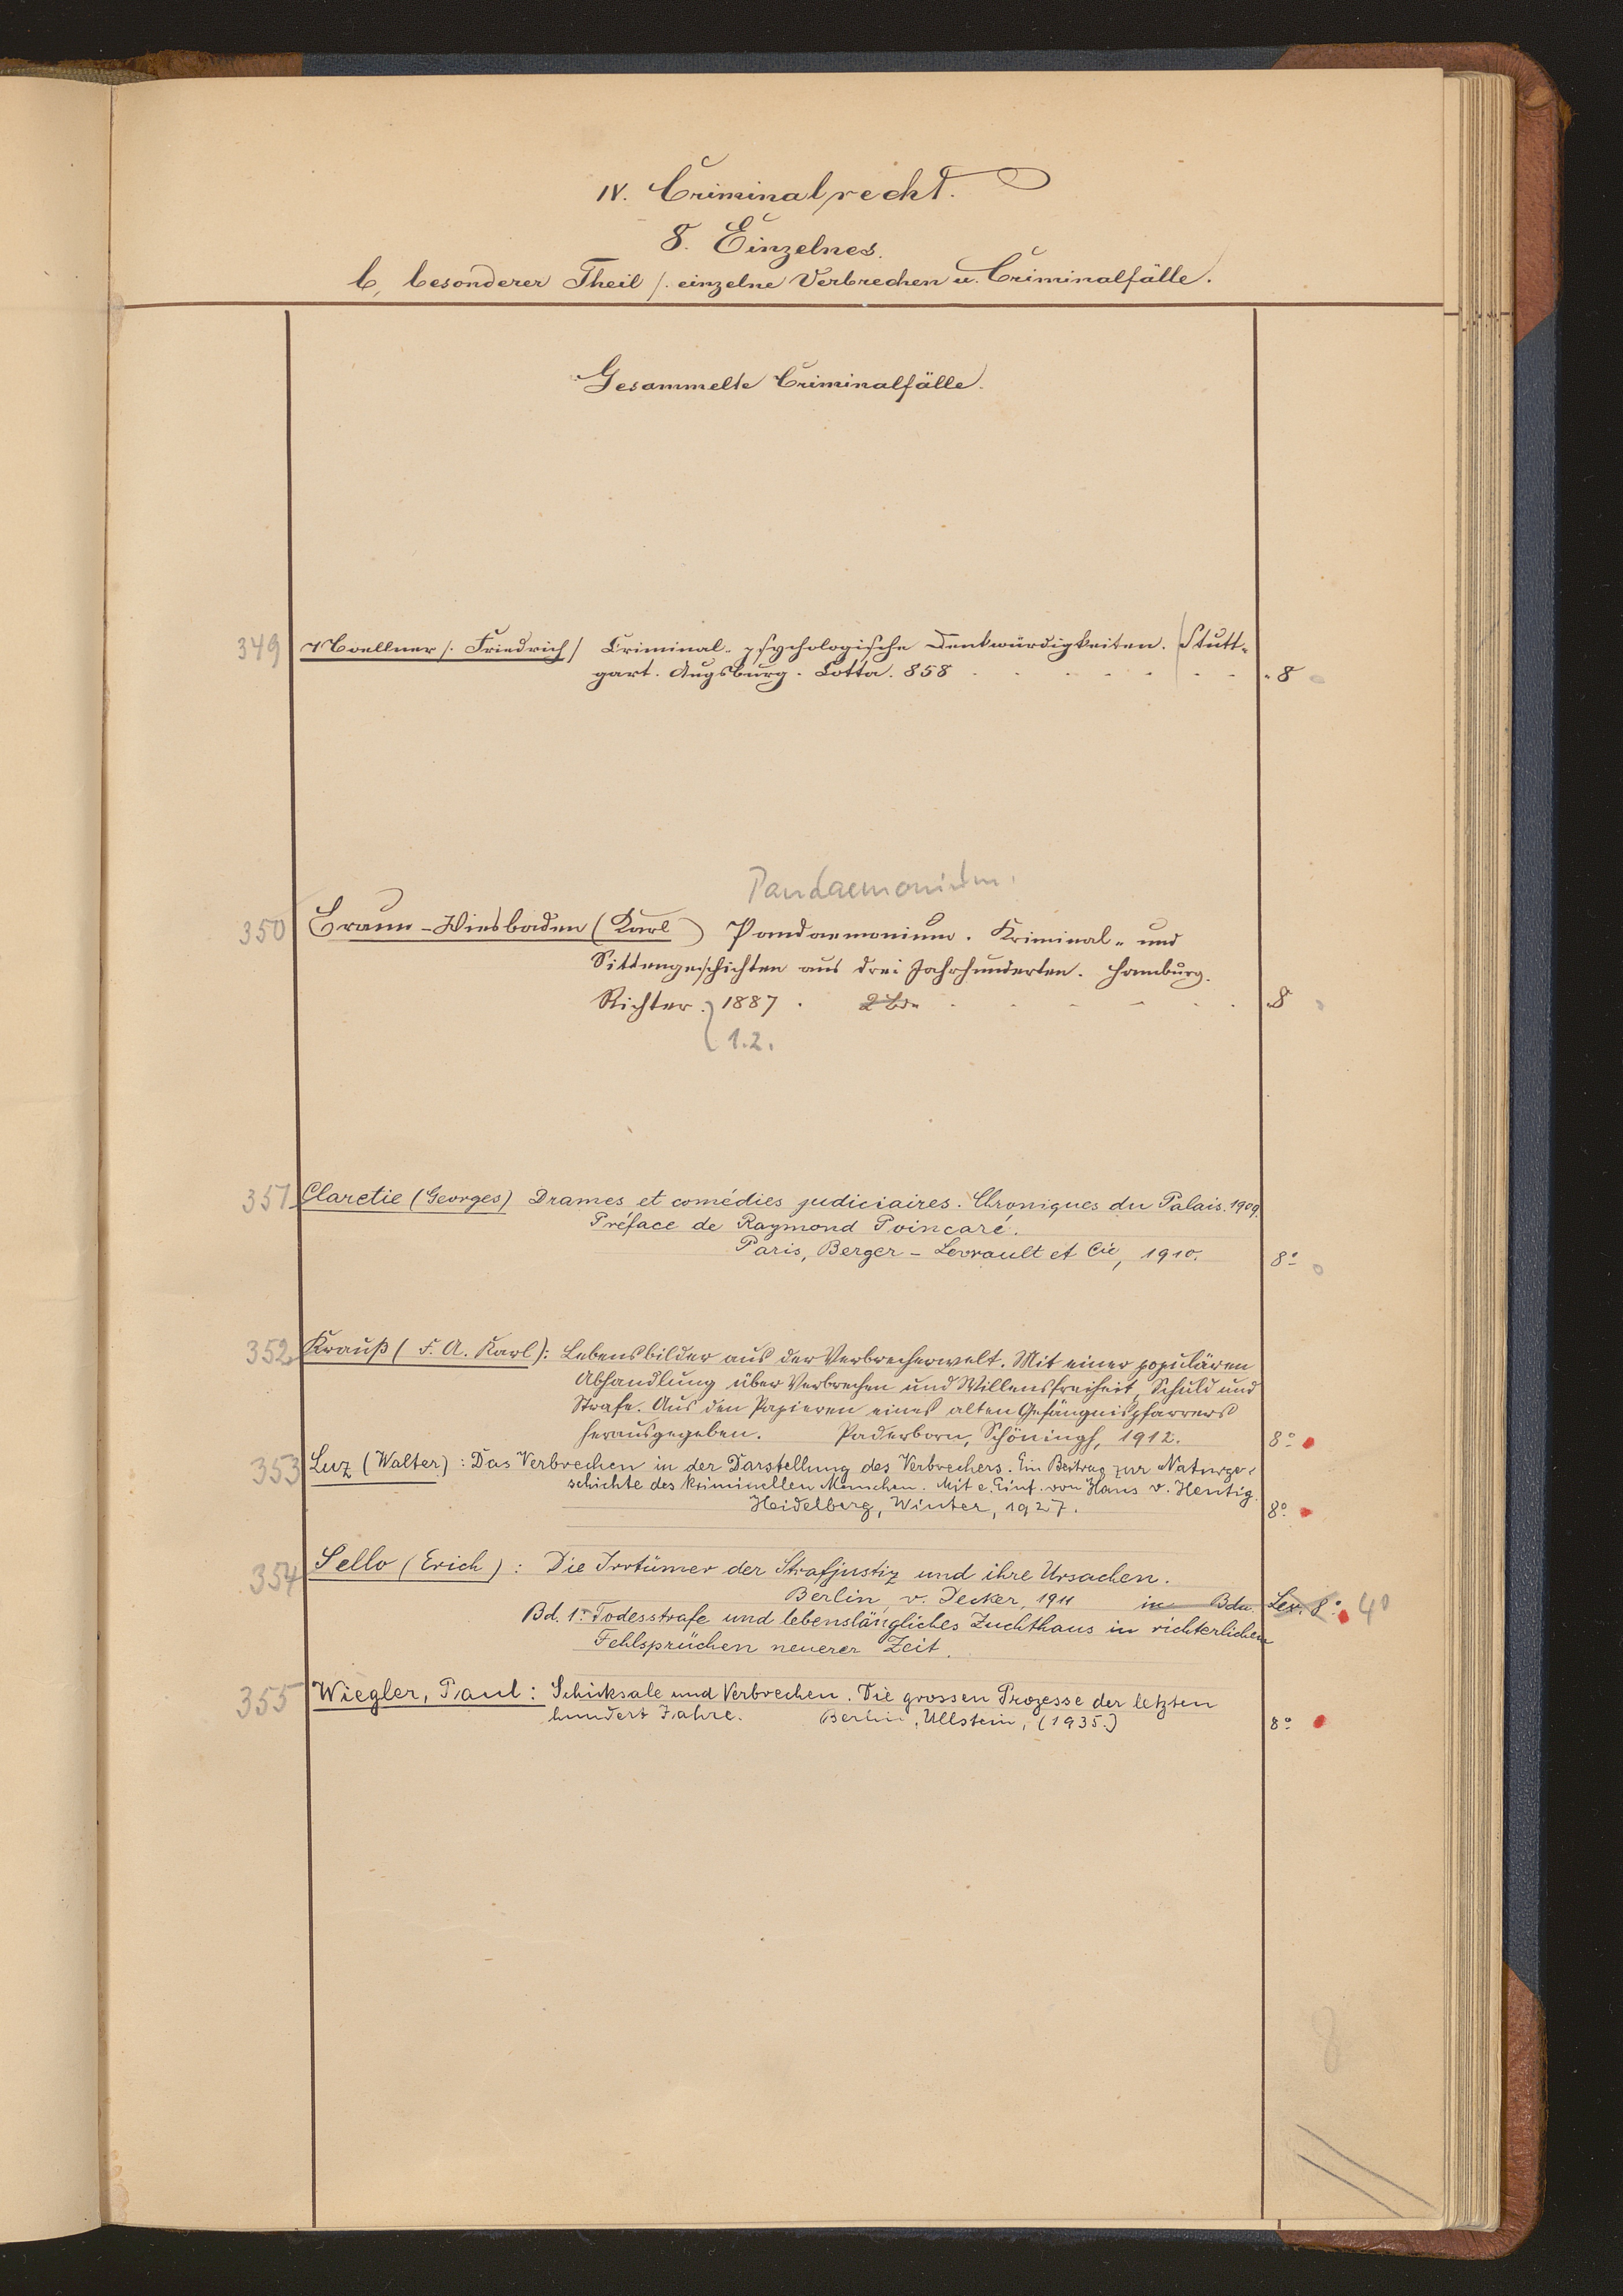 IV. Criminalrecht.
8. Einzelnes.
b, besonderer Theil /. einzelne Verbrechen u. Criminalfälle.
Gesammelte Criminalfälle.
349 Noellner /. Friedrich / Criminal-psychologische Denkwürdigkeiten. Stutt-
gart. Augsburg. Cotta. 858 8
Pandaemonium.
350 Braun-Wiesbaden (Karl) Pandaemonium. Kriminal- und
Sittengeschichten aus drei Jahrhunderten. Hamburg.
Richter. 1887. 2 Bde 8
1.2.
351 Claretie (Georges) Drames et comédies judiciaires. Chroniques du Palais. 1909.
Préface de Raymond Poincaré.
Paris, Berger-Levrault et Cie, 1910. 8°
352 Krauß (F. A. Karl): Lebensbilder aus der Verbrecherwelt. Mit einer populären
Abhandlung über Verbrechen und Willensfreiheit, Schuld und
Strafe. Aus den Papieren eines alten Gefängnispfarrers
herausgegeben. Paderborn, Schöningh, 1912. 8°
353 Luz (Walter): Das Verbrechen in der Darstellung des Verbrechers. Ein Beitrag zur Naturge-
schichte des kriminellen Menschen. Mit e. Einf. von Hans v. Hentig.
Heidelberg, Winter, 1927. 8°
354 Sello (Erich): Die Irrtümer der Strafjustiz und ihre Ursachen.
Berlin, v. Decker, 1911 in Bdn. Lex. 8° 4°
Bd. 1: Todesstrafe und lebenslängliches Zuchthaus in richterlichen
Fehlsprüchen neuerer Zeit.
355 Wiegler, Paul: Schicksale und Verbrechen. Die grossen Prozesse der letzten
hundert Jahre. Berlin, Ullstein, (1935.) 8°
8